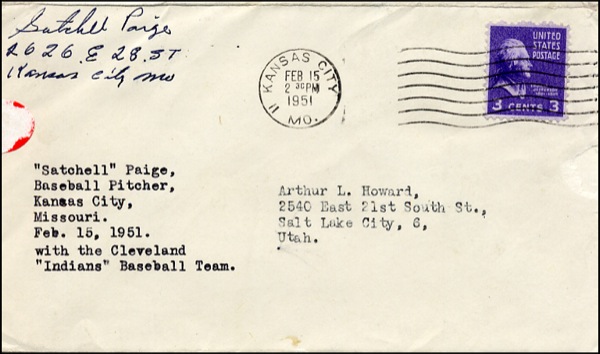 Satchell Paige
2626 E 28 ST
Kansas City Mo
KANSAS CITY
FEB 15
2 30 PM
1951
11
MO.
UNITED
STATES
POSTAGE
3 CENTS 3
"Satchell" Paige,
Baseball Pitcher,
Kansas City,
Missouri.
Feb. 15, 1951.
with the Cleveland
"Indians" Baseball Team.
Arthur L. Howard,
2540 East 21st South St.,
Salt Lake City, 6,
Utah.